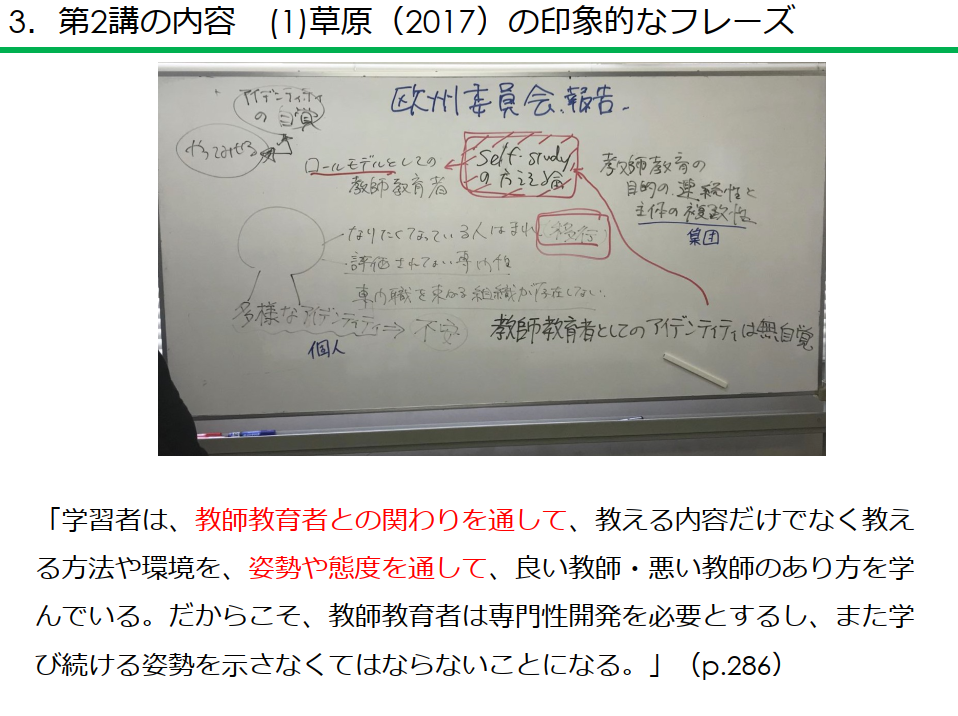 3．第2講の内容　(1)草原（2017）の印象的なフレーズ
アイデンティティ
の 自覚
欧州委員会 報告.
やってみせる
ロールモデルとしての
教師教育者
self-study
の方法論
教師教育の
目的の連続性と
主体の複数性
集団
なりたくてなっている人はまれ
評価されてない専門性
専門職を束ねる組織が存在しない.
多様なアイデンティティ ⇒ 不安
個人
教師教育者としてのアイデンティティは無自覚
「学習者は、教師教育者との関わりを通して、教える内容だけでなく教え
る方法や環境を、姿勢や態度を通して、良い教師・悪い教師のあり方を学
んでいる。だからこそ、教師教育者は専門性開発を必要とするし、また学
び続ける姿勢を示さなくてはならないことになる。」（p.286）